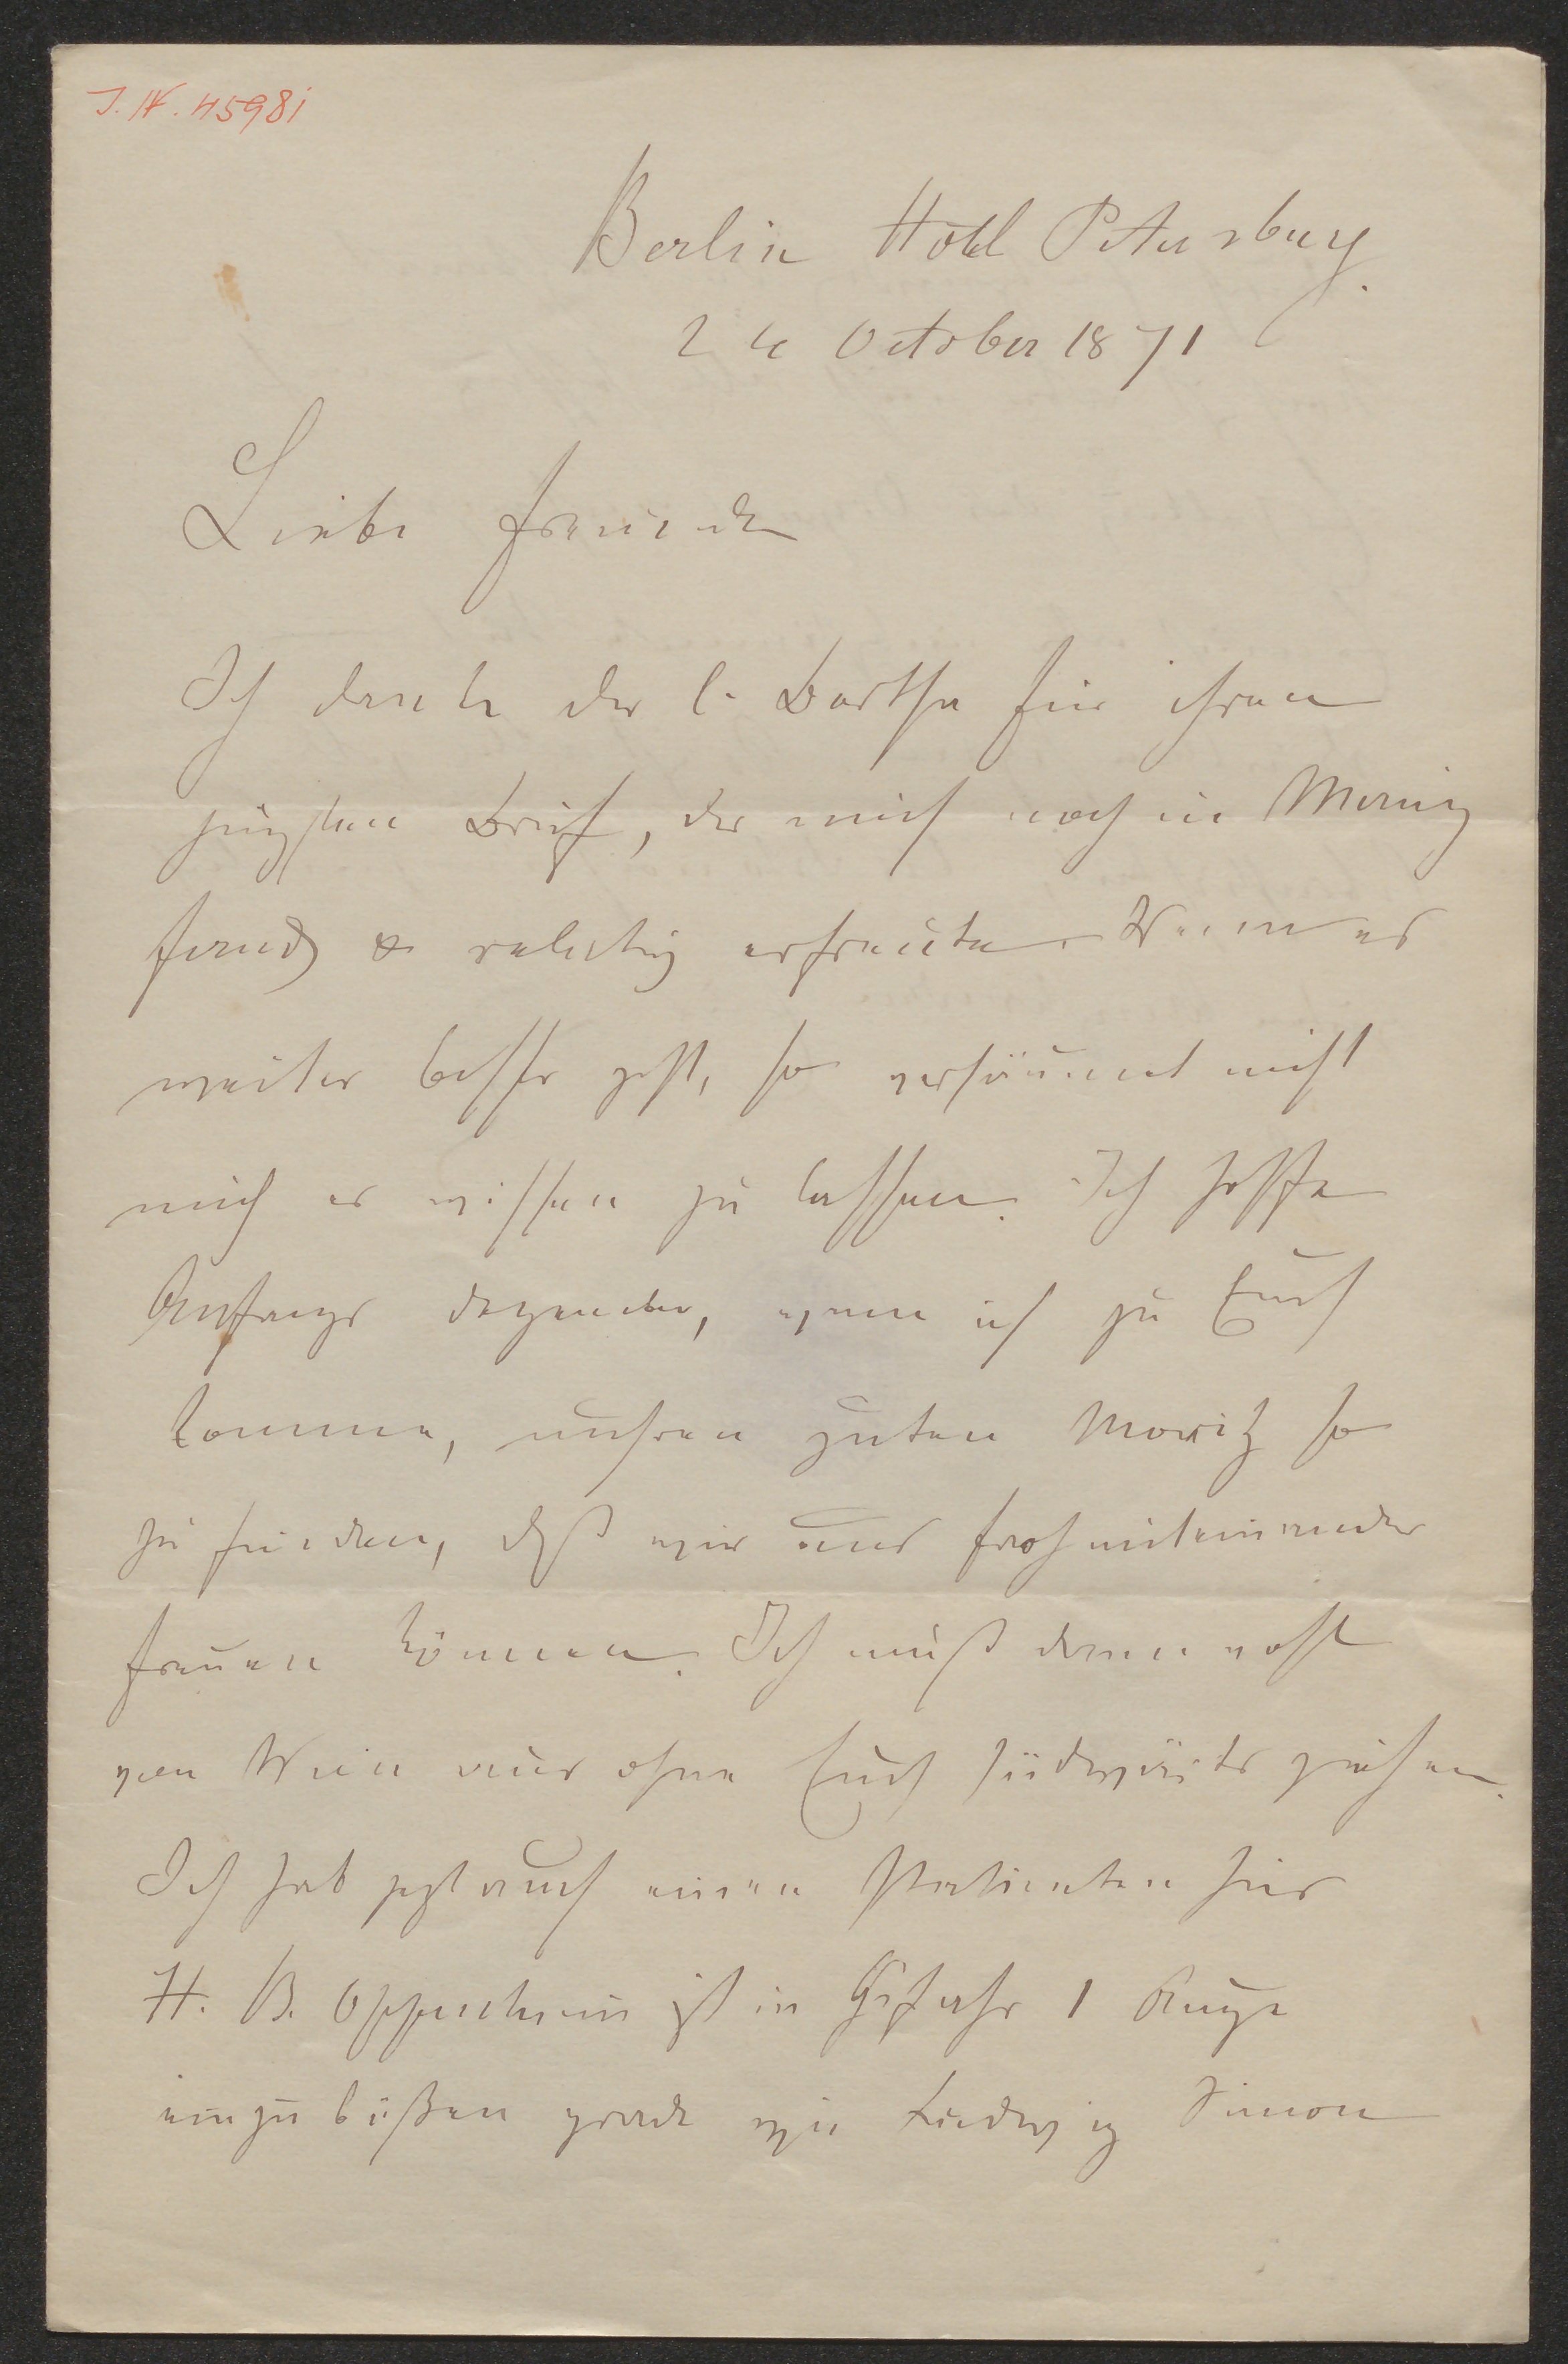 I.N. 45981
Berlin Hotel Petersburg.
24 October 1871
Liebe Freunde
Ich danke der l. Bertha für ihren
jüngsten Brief, der mich noch in Mainz
fand & richtig erfreute. Wenn es
weiter besser geht, so versäumet nicht
mich es wissen zu lassen. Ich hoffe
Anfangs Dezember, wenn ich zu Euch
komme, unsren guten Moritz so
zu finden, daß wir uns froh miteinander
freuen können. Ich muß dann wohl
von Wien aus ohne Euch südwärts ziehen.
Ich hab jezt auch einen Patienten hier
H. B. Oppenheim ist in Gefahr 1 Auge
einzubüßen grade wie Ludwig Simon